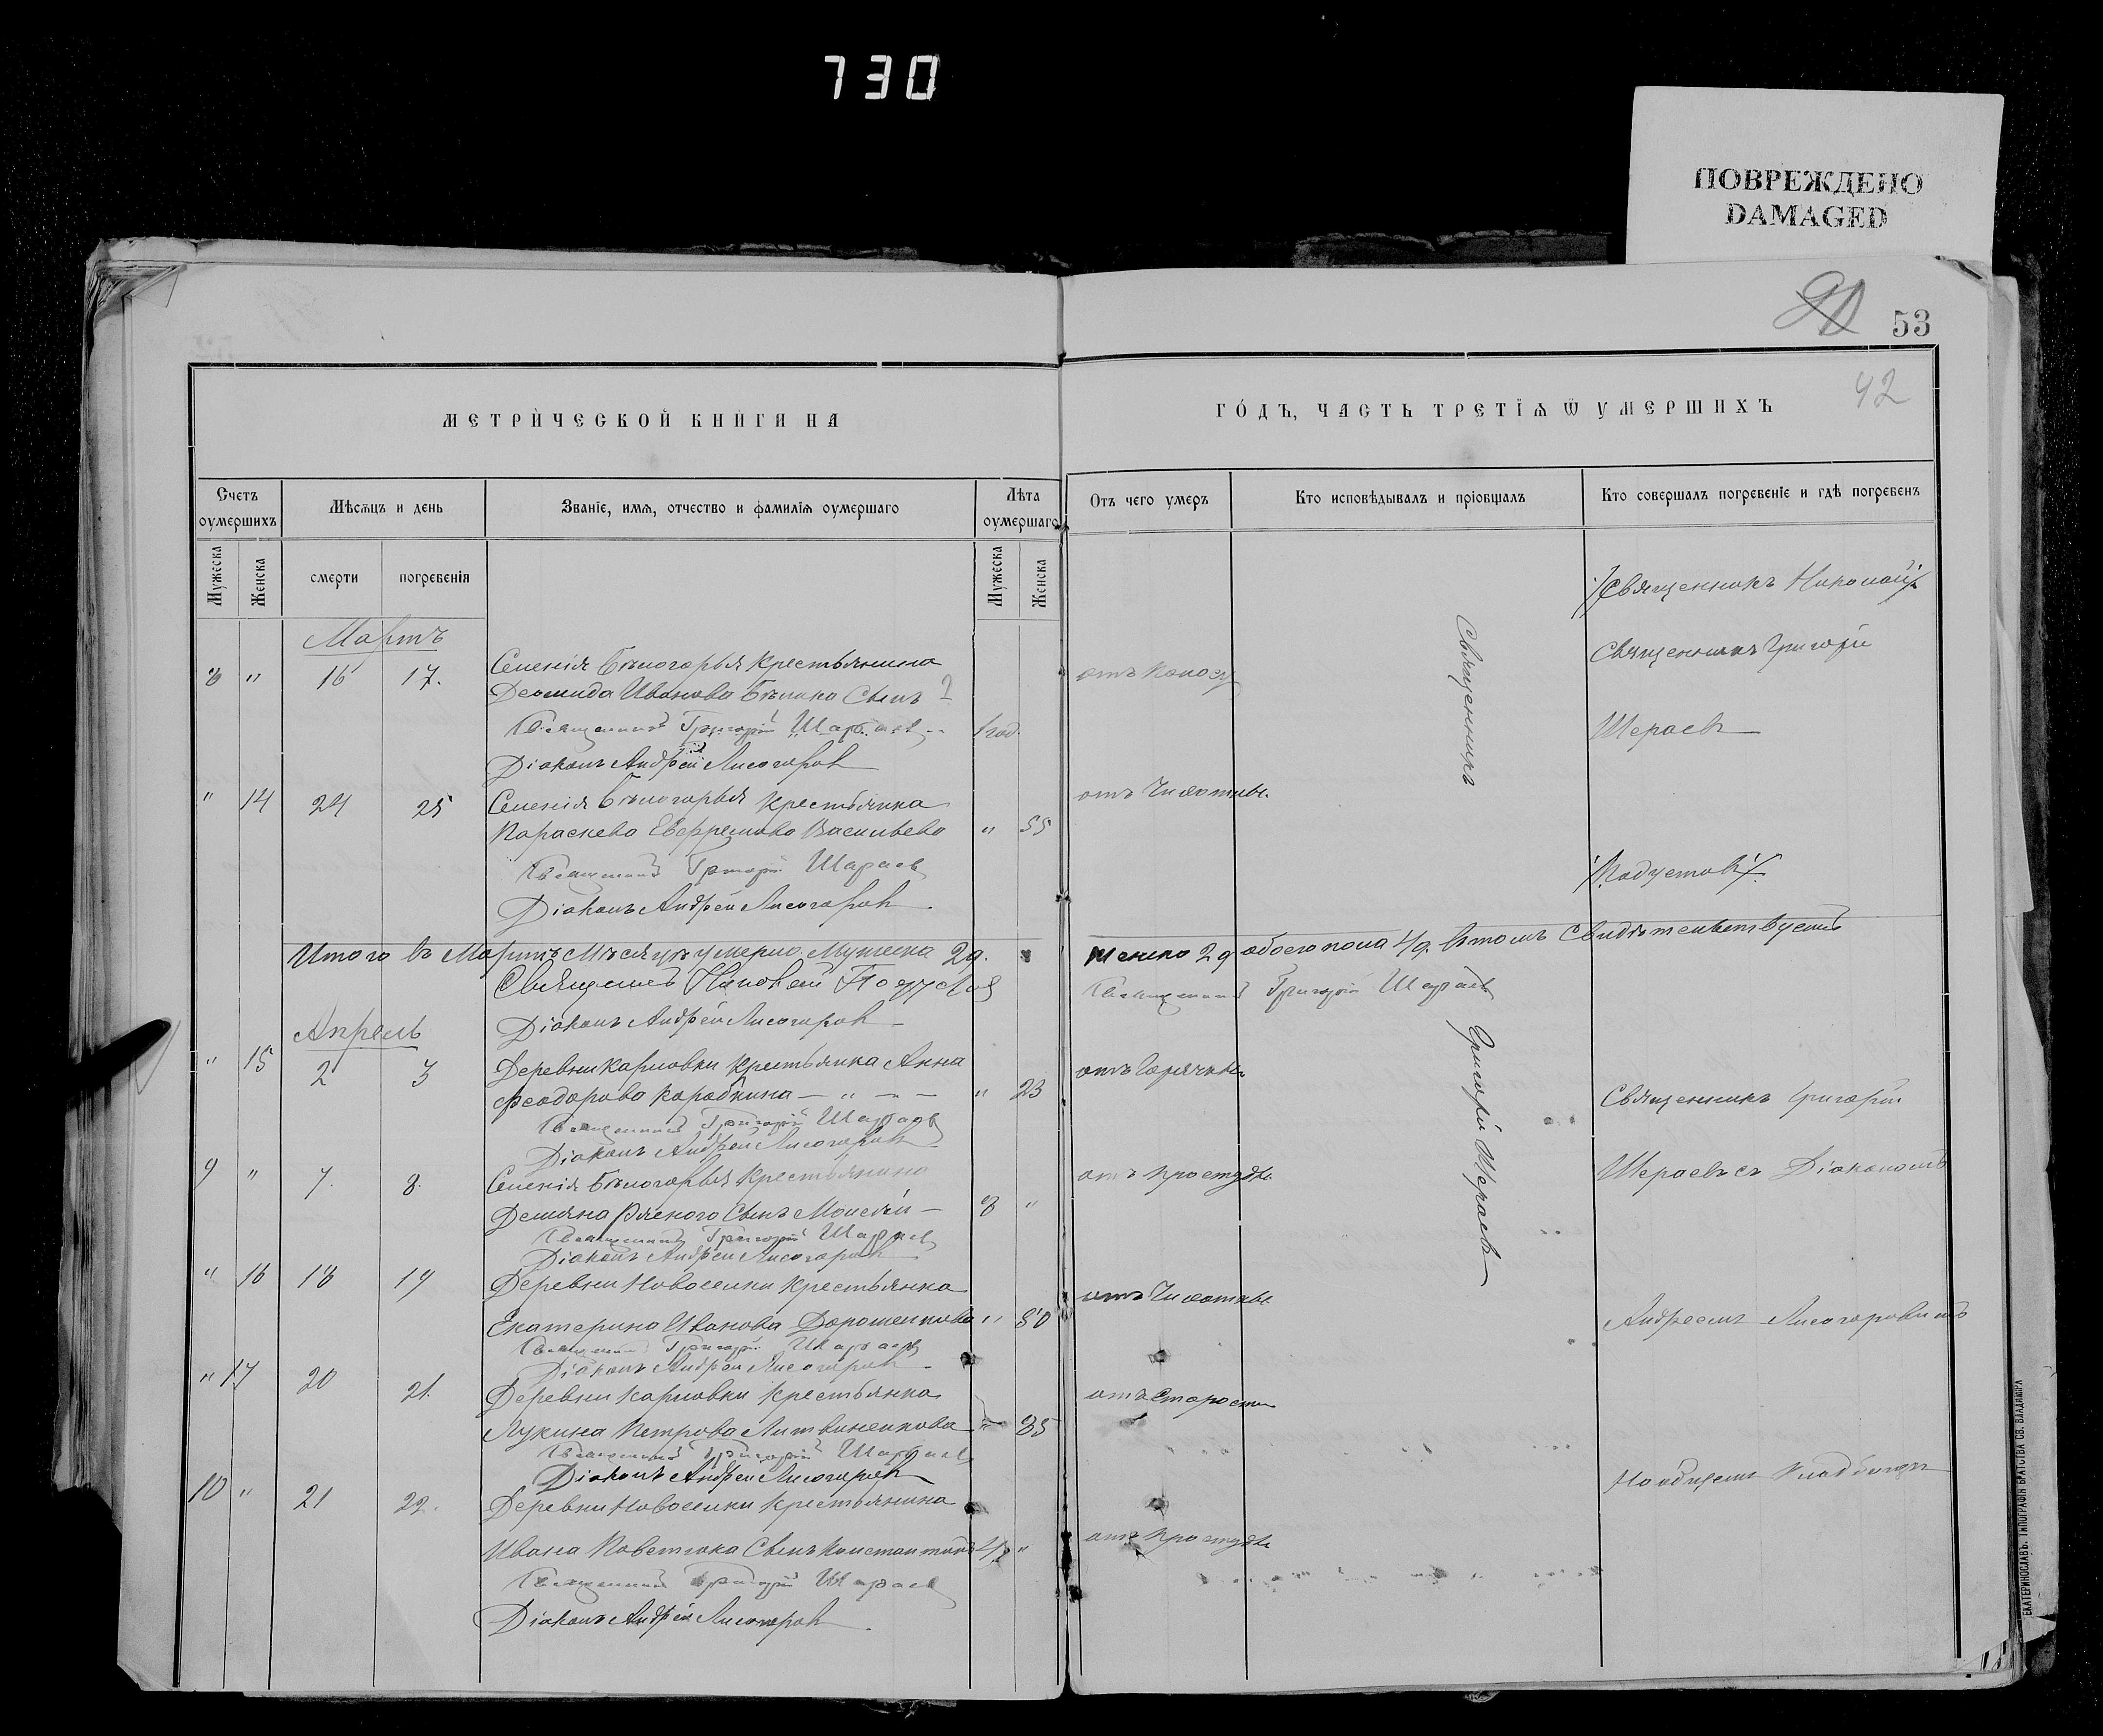 730
ПОВРЕЖДЕНО
DAMAGED
90
53
42
МЕТРИЧЕСКОЙ КНИГИ НА
ГОДЪ, ЧАСТЬ ТРЕТІЯ Ѿ УМЕРШИХЪ
Счетъ оумершихъ
Мѣсяцъ и день
Званіе, имя, отчество и фамилія оумершаго
Лѣта оумершаго
Отъ чего умеръ
Кто исповѣдывалъ и пріобщалъ
Кто совершалъ погребеніе и гдѣ погребенъ
Мужеска
Женска
смерти
погребенія
Мужеска
Женска
Священникъ Николай
Мартъ
8 " 16 17. Селенія Бѣлогорья крестьянина
Діомида Иванова Бѣлика Сынъ
Священникъ Григорій Шараев
1 год.
Діаконъ Андрей Лисогоров
отъ Коносу
Священникъ Григорій
Шераевъ
" 14 24 25 Селенія Бѣлогорья крестьянка
Параскева Евфремова Васильева " 55
отъ Чихотки.
Священникъ Григорій Шараев
Діаконъ Андрей Лисогоров
Подустов
Итого въ Мартѣ Мѣсяцѣ умерло Мужеска 2д.
женска 2д обоего пола 4д. въ томъ Свидѣтельствуетъ
Священникъ Николай Подустов
Священникъ Григорій Шараев
Діаконъ Андрей Лисогоров
Апрель
" 15 2 3 Деревни Карловки крестьянка Анна
Феодорова Коробкина " 23
отъ Горячки
Священникъ Григорій Шараев
Діаконъ Андрей Лисогоров
Священникъ Григорій
9 " 7. 8. Селенія Бѣлогорья крестьянина
Демьяна Сынъ Моисей 8 "
отъ простуды
Шераевъ съ Діакономъ
Священникъ Григорій Шараев
Діаконъ Андрей Лисогоров
" 16 18 19 Деревни Новоселки крестьянка
Екатерина Иванова Дорошенкова " 50
отъ Чихотки
Андреемъ Лисогоровымъ
Священникъ Григорій Шараев
Діаконъ Андрей Лисогоров
" 17 20 21. Деревни Карловки крестьянка
Лукина Петрова Литвиненкова " 85
отъ Старости
Священникъ Григорій Шараев
Діаконъ Андрей Лисогоров
На общемъ Кладбищѣ
10 " 21 22. Деревни Новоселки крестьянина
Ивана Сынъ Константинъ "
отъ простуды
Священникъ Григорій Шараев
Діаконъ Андрей Лисогоров
Священникъ
Григорій Шераевъ
ЕКАТЕРИНОСЛАВЪ. ТИПОГРАФІЯ БРАТСТВА СВ. ВЛАДИМІРА